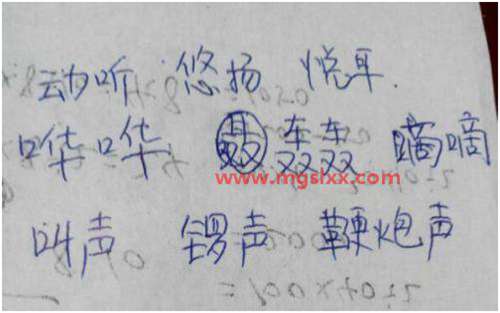 动听 悠扬 悦耳
哗哗 轰轰 嘀嘀
www.mgslxx.com
叫声 锣声 鞭炮声